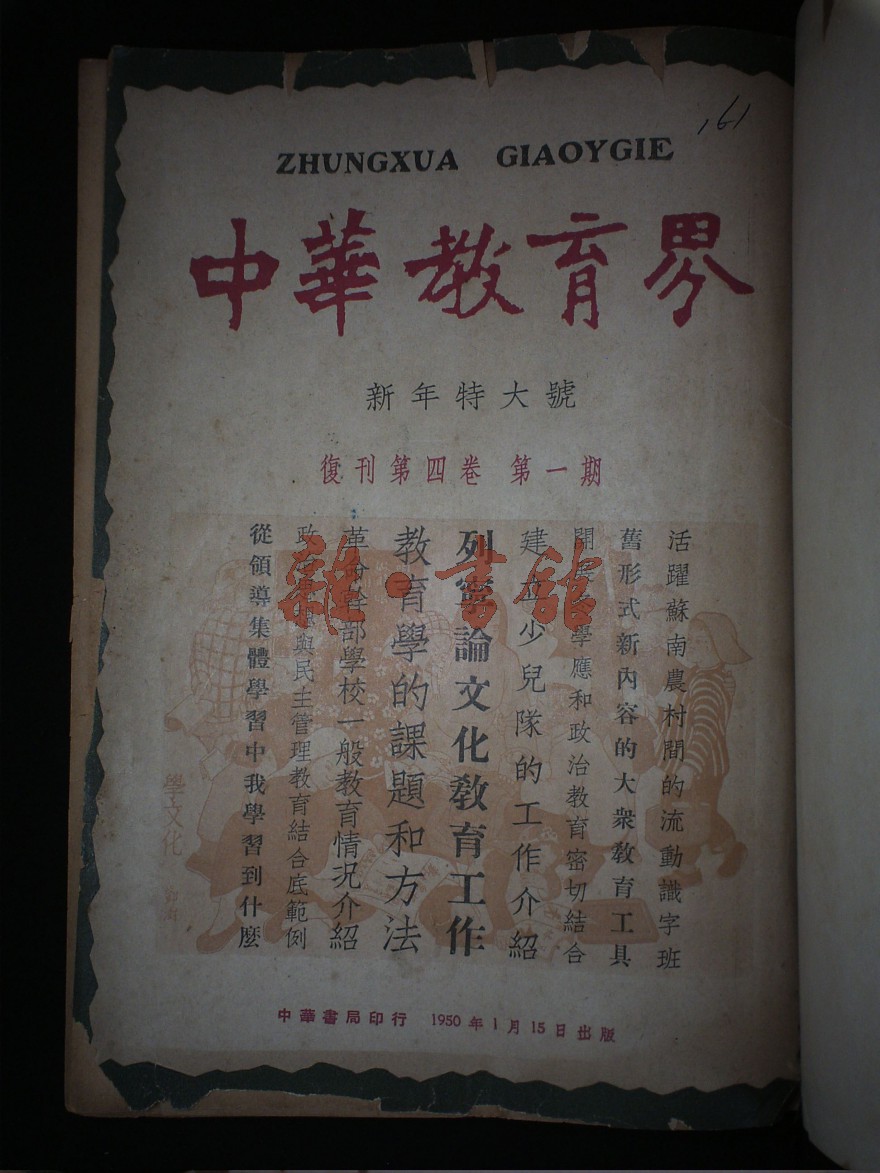 161
ZHUNGXUA GIAOYGIE
中華教育界
新年特大號
復刊第四卷 第一期
活躍蘇南農村間的流動識字班
舊形式新內容的大衆教育工具
開學應和政治教育密切結合
建立少兒隊的工作介紹
列寧論文化教育工作
教育學的課題和方法
革命幹部學校一般教育情況介紹
政與民主管理教育結合底範例
從領導集體學習中我學習到什麼
學文化
雜·書館
中華書局印行 1950年1月15日出版